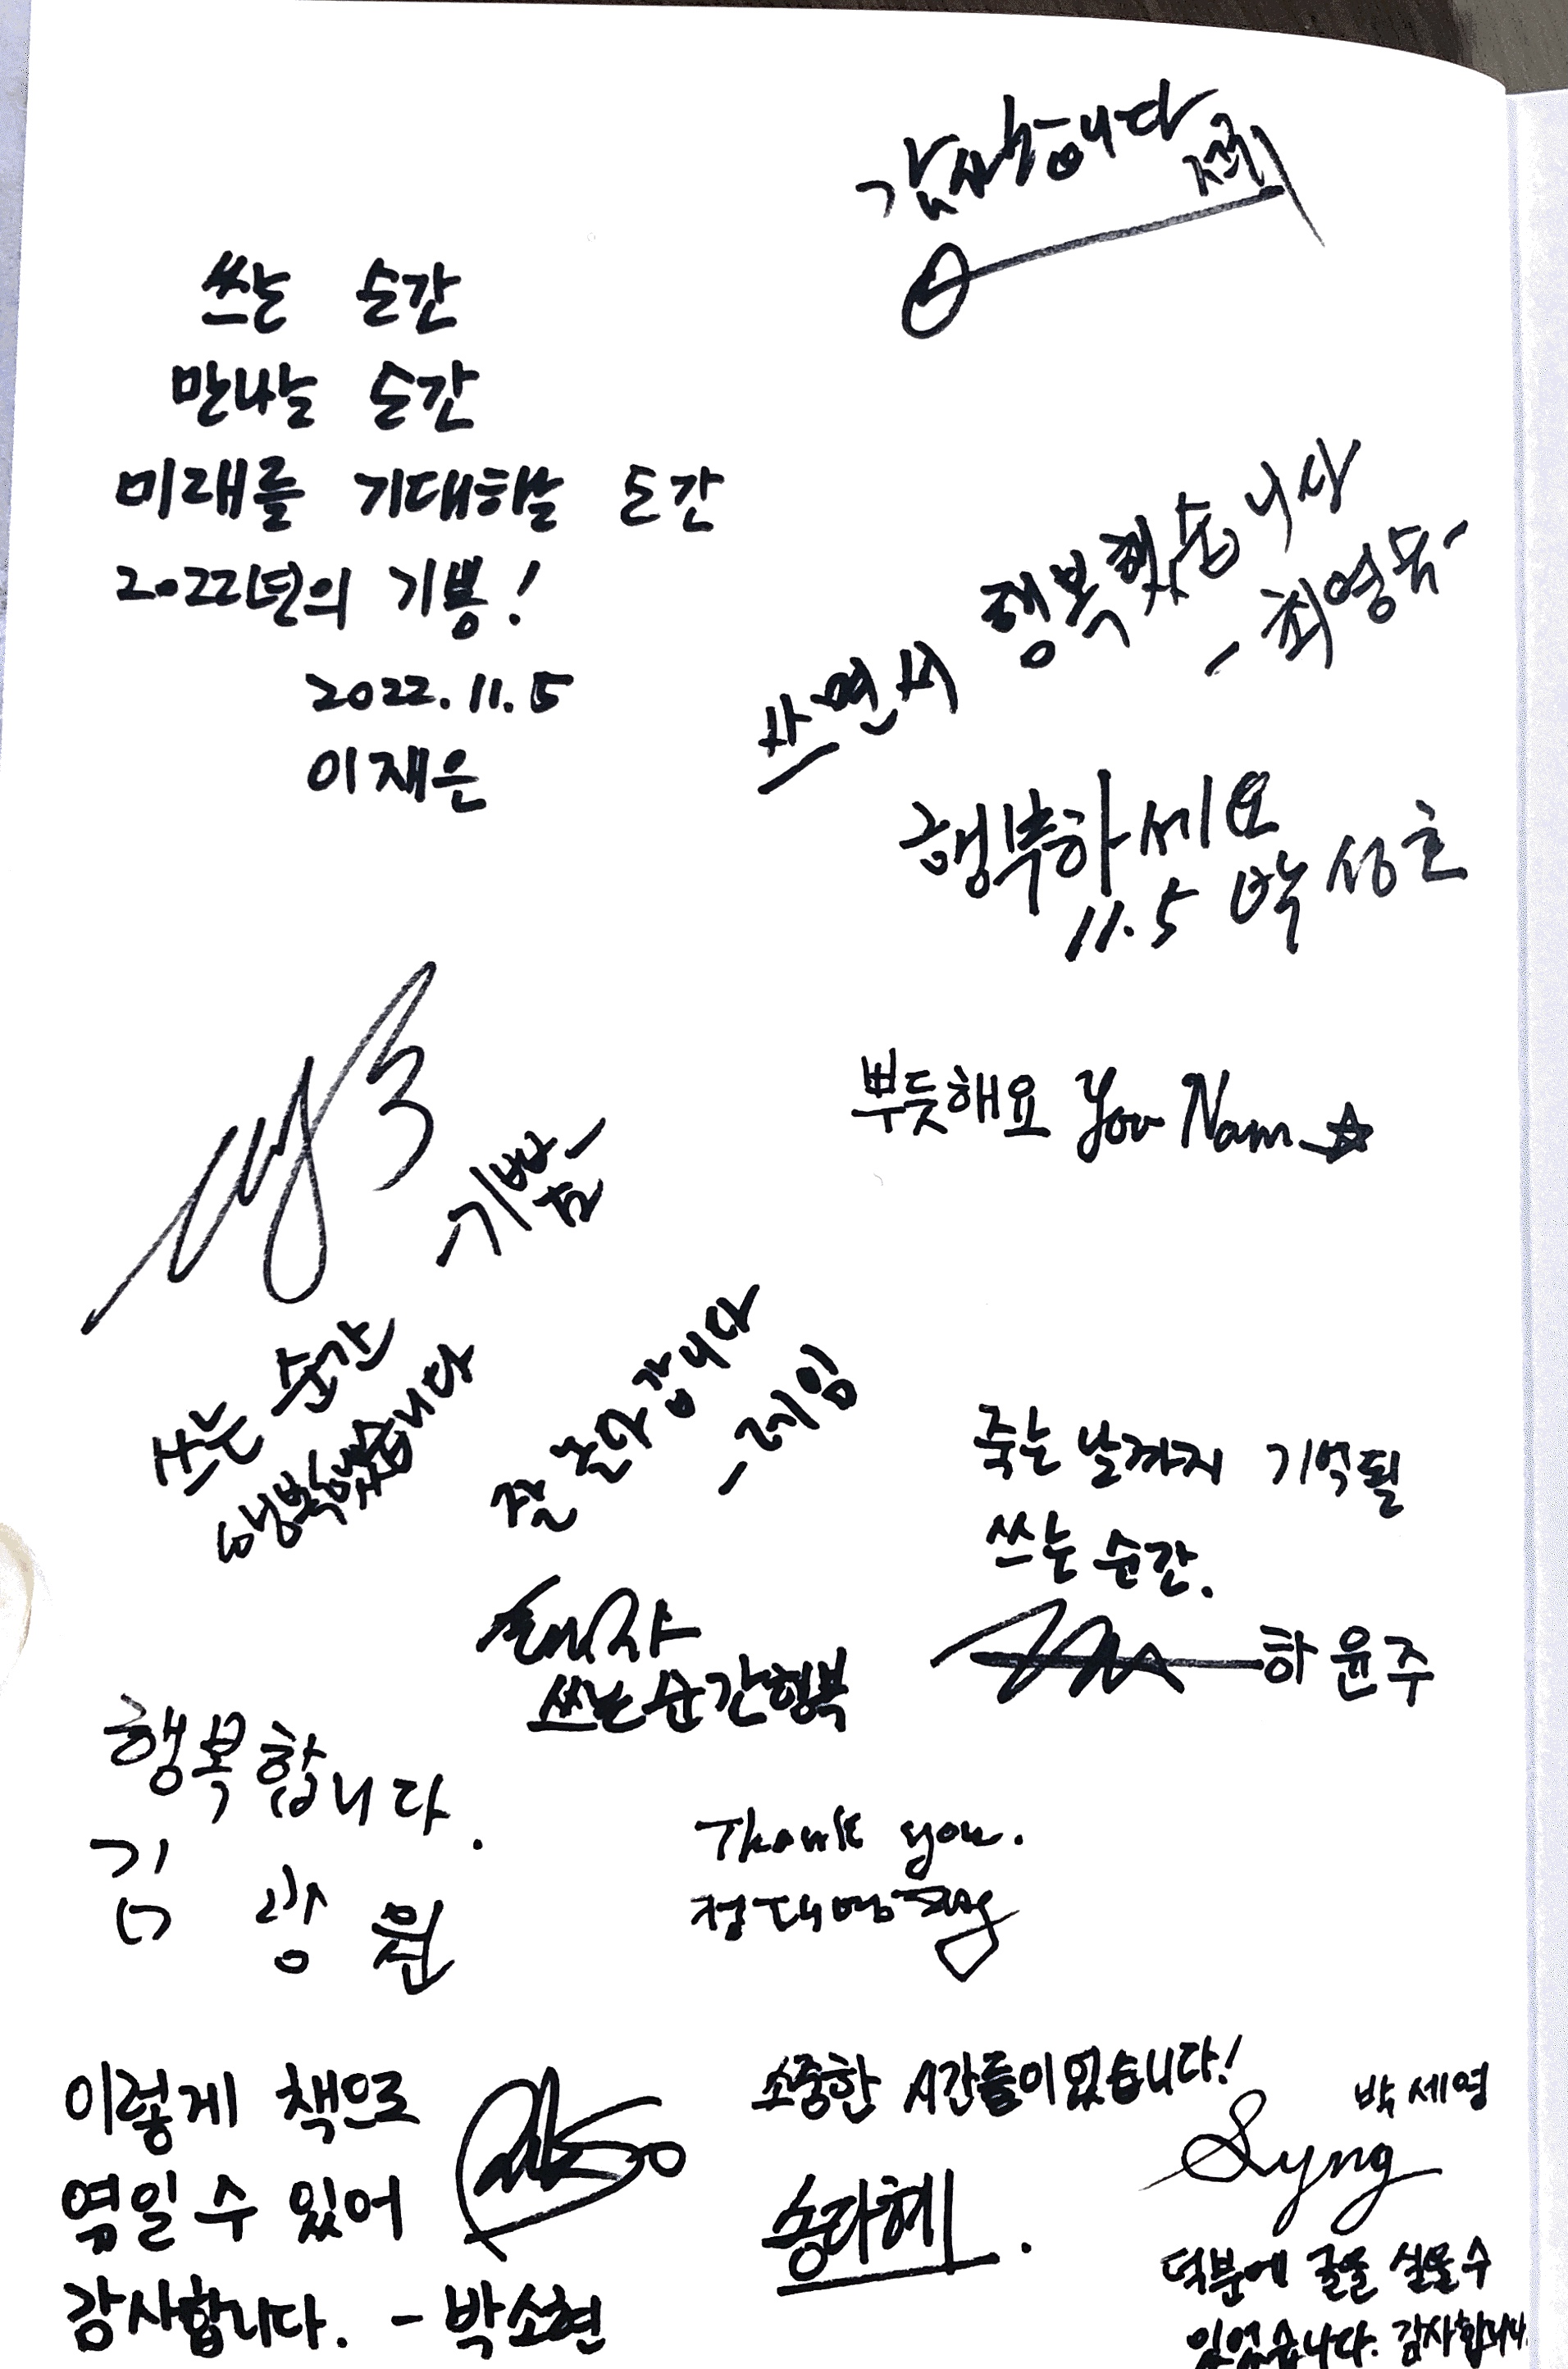 감사합니다
쓰는 순간
만나는 순간
미래를 기대하는 순간
2022년의 기쁨!
2022.11.5
이재은
쓰면서 행복했습니다
- 최영
행복하세요
11.5 박성호
뿌듯해요 You Nam
기쁨
쓰는 순간
행복했습니다
갑니다
죽는 날까지 기억될
쓰는 순간.
하윤주
쓰는 순간 행복
행복합니다.
김광원
Thank you.
정대명
이렇게 책으로
엮일 수 있어
감사합니다. - 박소현
소중한 시간들이었습니다!
송다혜.
박세영
Syng
덕분에 글을 실을 수
있었습니다. 감사합니다.